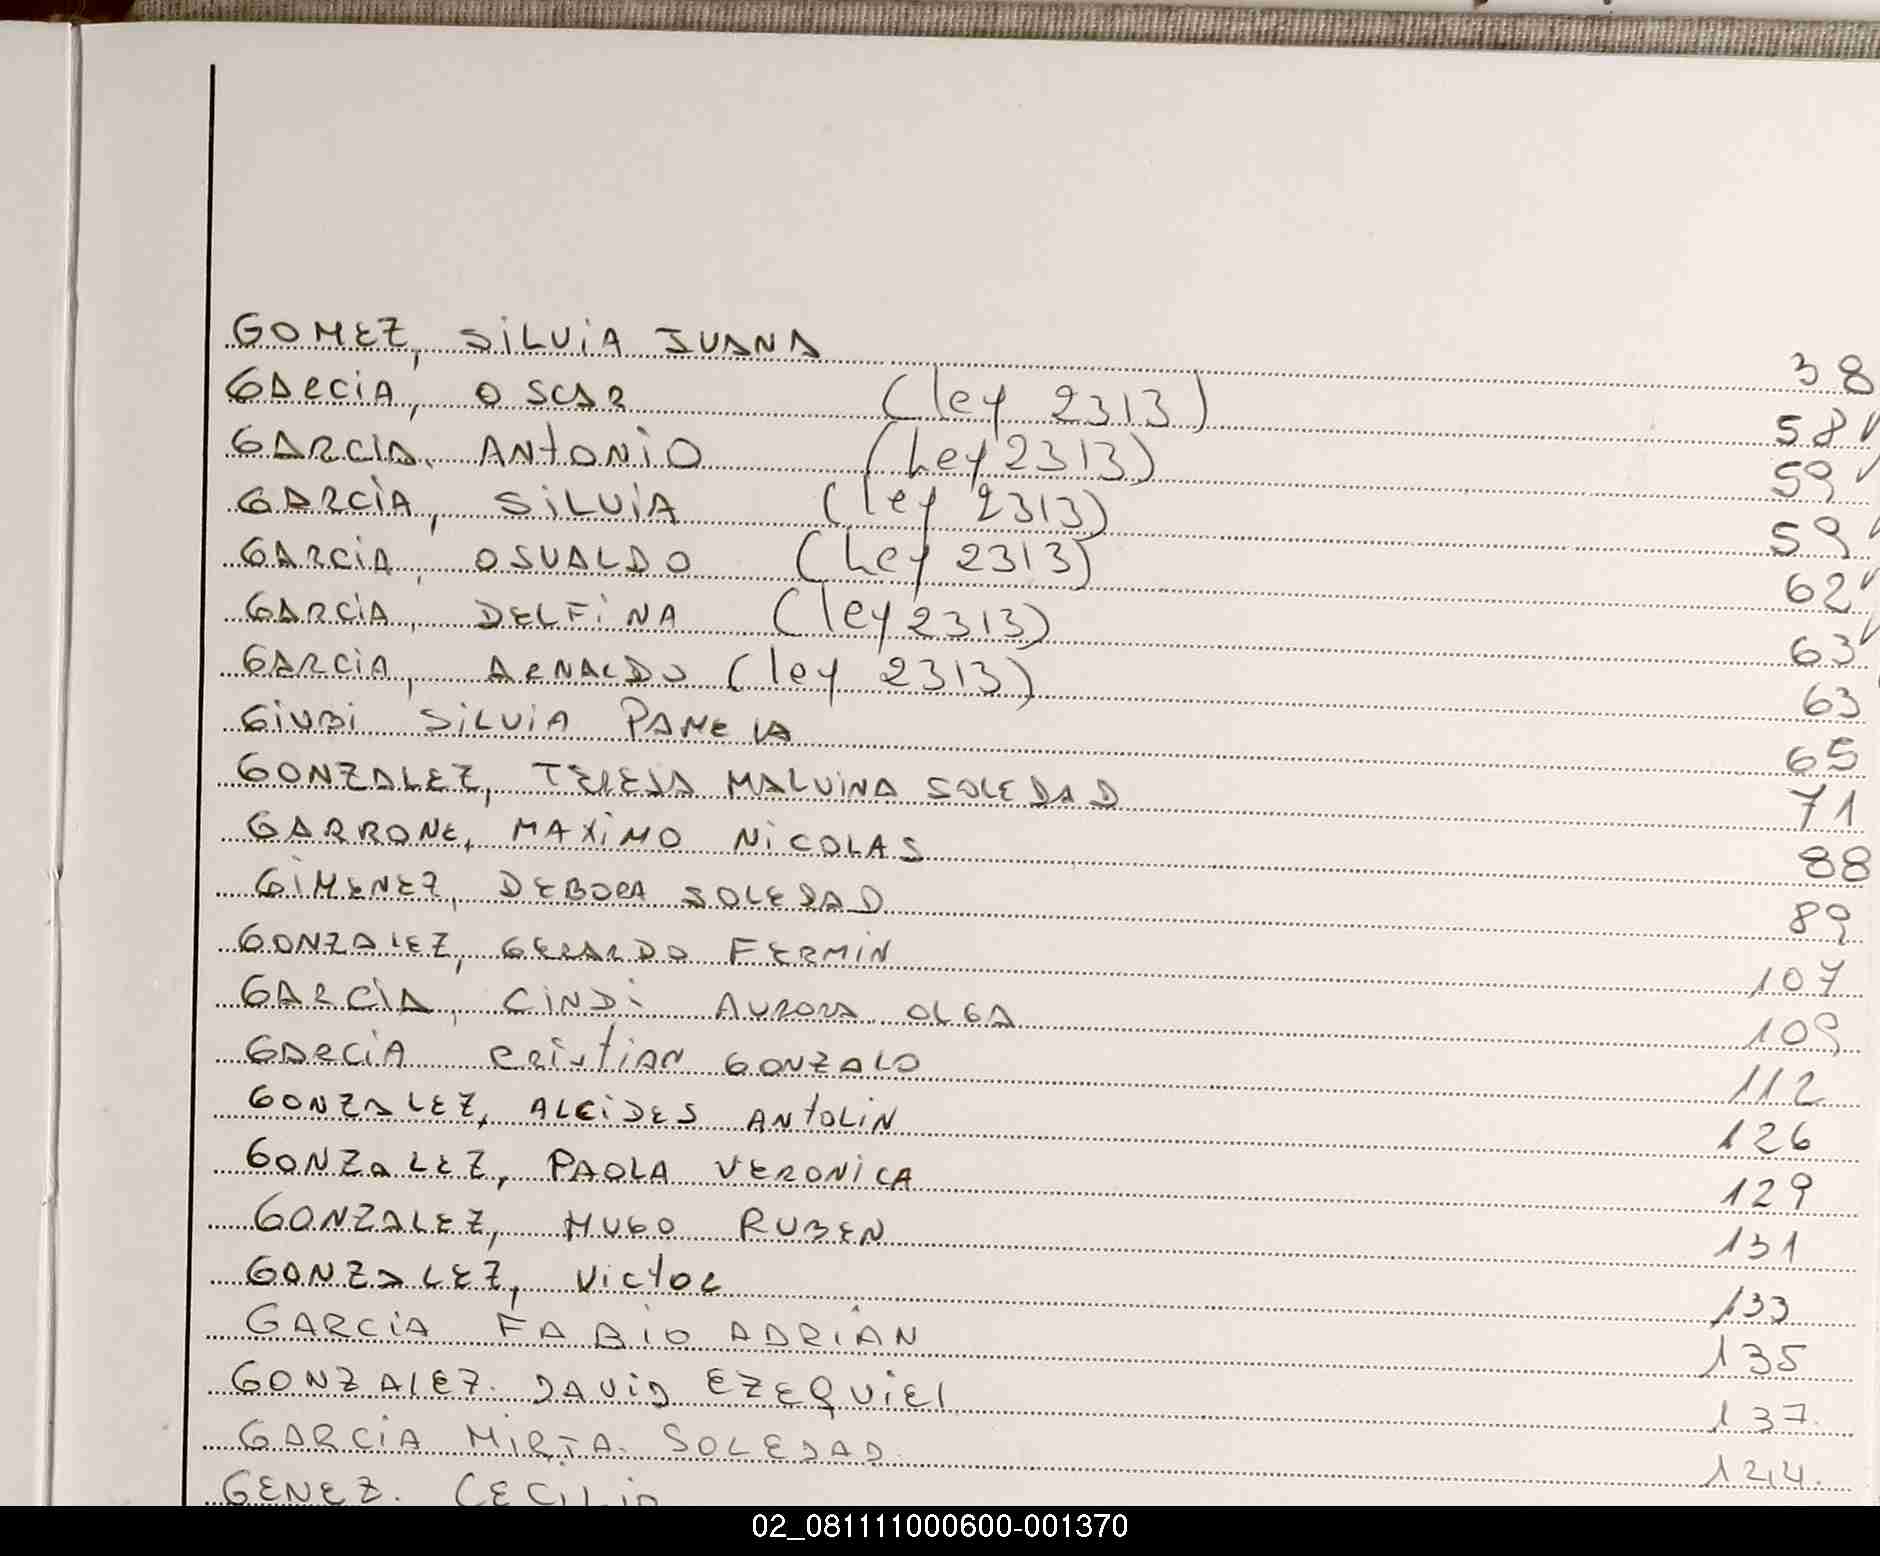 GOMEZ, SILVIA JUANA 38
GARCIA, OSCAR (ley 2313) 58
GARCIA, ANTONIO (Ley 2313) 59
GARCIA, SILVIA (ley 2313) 59
GARCIA, OSVALDO (Ley 2313) 62
GARCIA, DELFINA (ley 2313) 63
GARCIA, ARNALDO (ley 2313) 63
SILVIA PAMELA 65
GONZALEZ, TERESA MALVINA SOLEDAD 71
GARRONE, MAXIMO NICOLAS 88
GIMENEZ, DEBORA SOLEDAD 89
GONZALEZ, GERARDO FERMIN 107
GARCIA, CINDI AURORA OLGA 109
GARCIA CRISTIAN GONZALO 112
GONZALEZ, ALCIDES ANTOLIN 126
GONZALEZ, PAOLA VERONICA 129
GONZALEZ, HUGO RUBEN 131
GONZALEZ, VICTOR 133
GARCIA FABIO ADRIAN 135
GONZALEZ. DAVID EZEQUIEL 137.
GARCIA MIRTA SOLEDAD. 124.
GENEZ. CECILIO
02_081111000600-001370